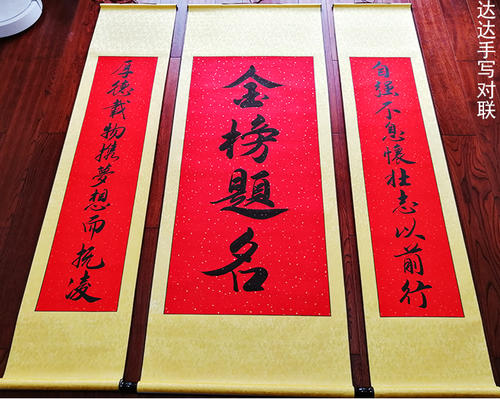 达达手写对联
金榜題名
自强不息懷壮志以前行
厚德載物携夢想而抚凌